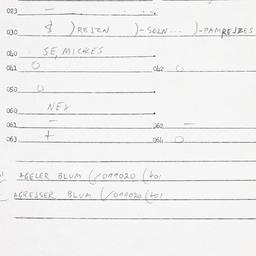 023 —
030 $ )RESZN )-SOLN... )-PAMRESZES
040 SE, MICKES
041 O 042 O
050 O
060 NEX
061 — 062 —
063 + 064 O
AGELER BLUM (/099020 (601
AGRESSER BLUM (/099020 (601